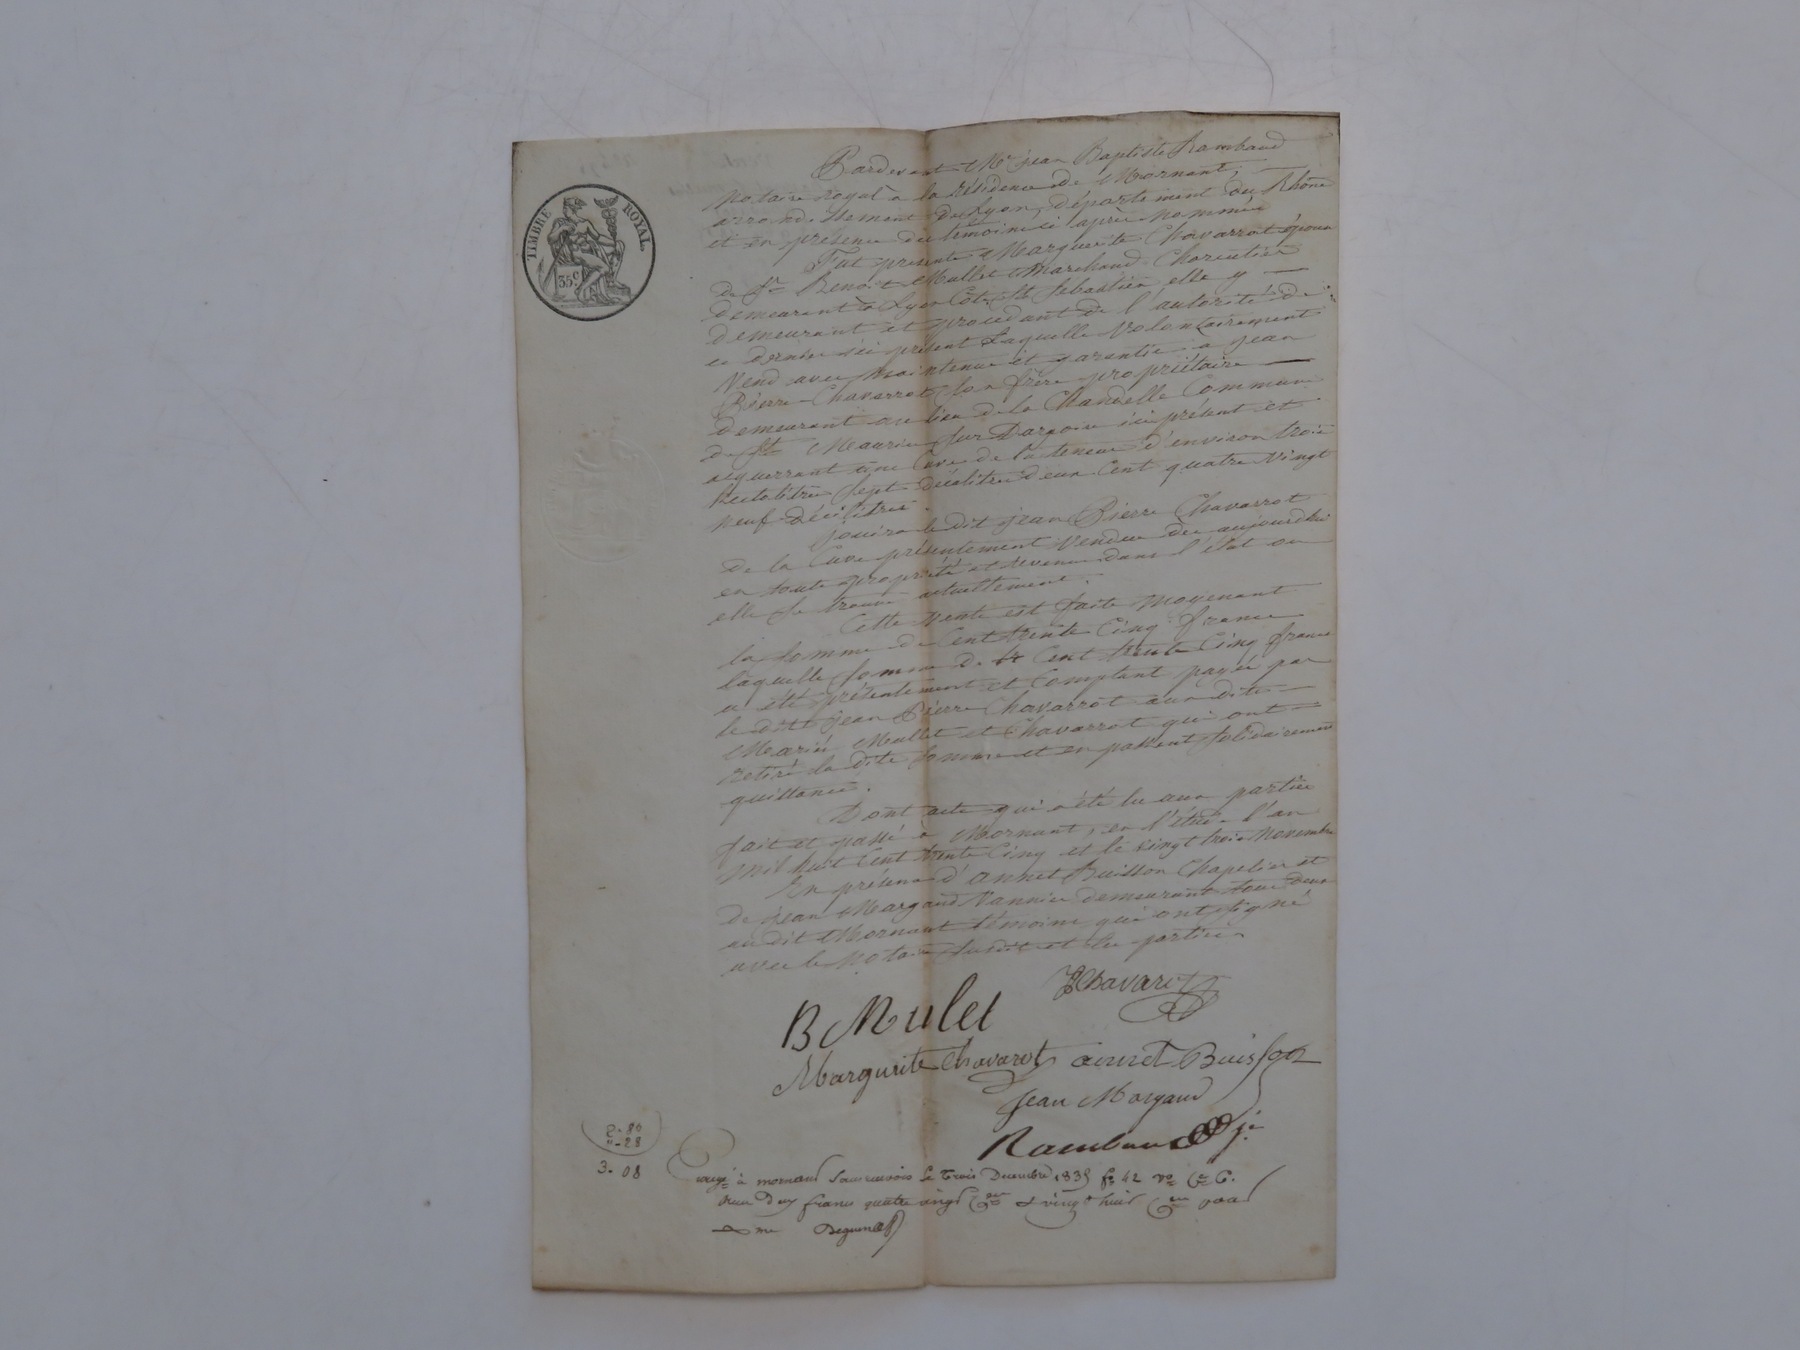 TIMBRE ROYAL
35 C.
Pardevant Me jean Baptiste Rambaud
Notaire royal à la résidence de Mornant,
arrondissement de Lyon, département du Rhône
et en présence des témoins ci après nommés
Fut présente Marguerite Chavarrot épouse
de Sr Benoit Mullet Marchand Charcutier
demeurant à Lyon Côte St Sébastien elle y
demeurant et procédant de l'autorité de
ce dernier ici présent Laquelle Volontairement
Vend avec Maintenue et garantie à jean
Pierre Chavarrot son frère propriétaire
demeurant au lieu de la Chandelle Commune
de St Maurice sur Dargoire ici présent et
acquerrant une Cuve de la teneur d'environ trois
hectolitres sept décalitres deux Cent quatre Vingt
neuf décilitres.
jouira le dit jean Pierre Chavarrot
de la Cuve présentement Vendue dès aujourdhui
en toute propriété et revenu dans l'état ou
elle se trouve actuellement.
Cette Vente est faite Moyenant
la somme de Cent trente Cinq francs
laquelle somme de Cent trente Cinq francs
a été présentement et Comptant payée par
le dit jean Pierre Chavarrot aux dits
Mariés Mullet et Chavarrot qui ont
retiré la dite somme et en passent solidairement
quittance.
Dont acte qui a été lu aux parties
fait et passé à Mornant, en l'étude l'an
Mil huit Cent trente Cinq et le vingt trois Novembre
En présence d'annet Buisson Chapelier et
de jean Margand Vannier demeurant tous deux
au dit Mornant témoins qui ont signé
avec le Notaire susdit et les parties
JP Chavarot
B Mulet
Margurite Chavarot annet Buisson
Jean Morgand
Rambaud
2.80
"-28
3.08
à mornant le trois Decembre 1835 fo 42
deux francs quatre vingt et vingt huit